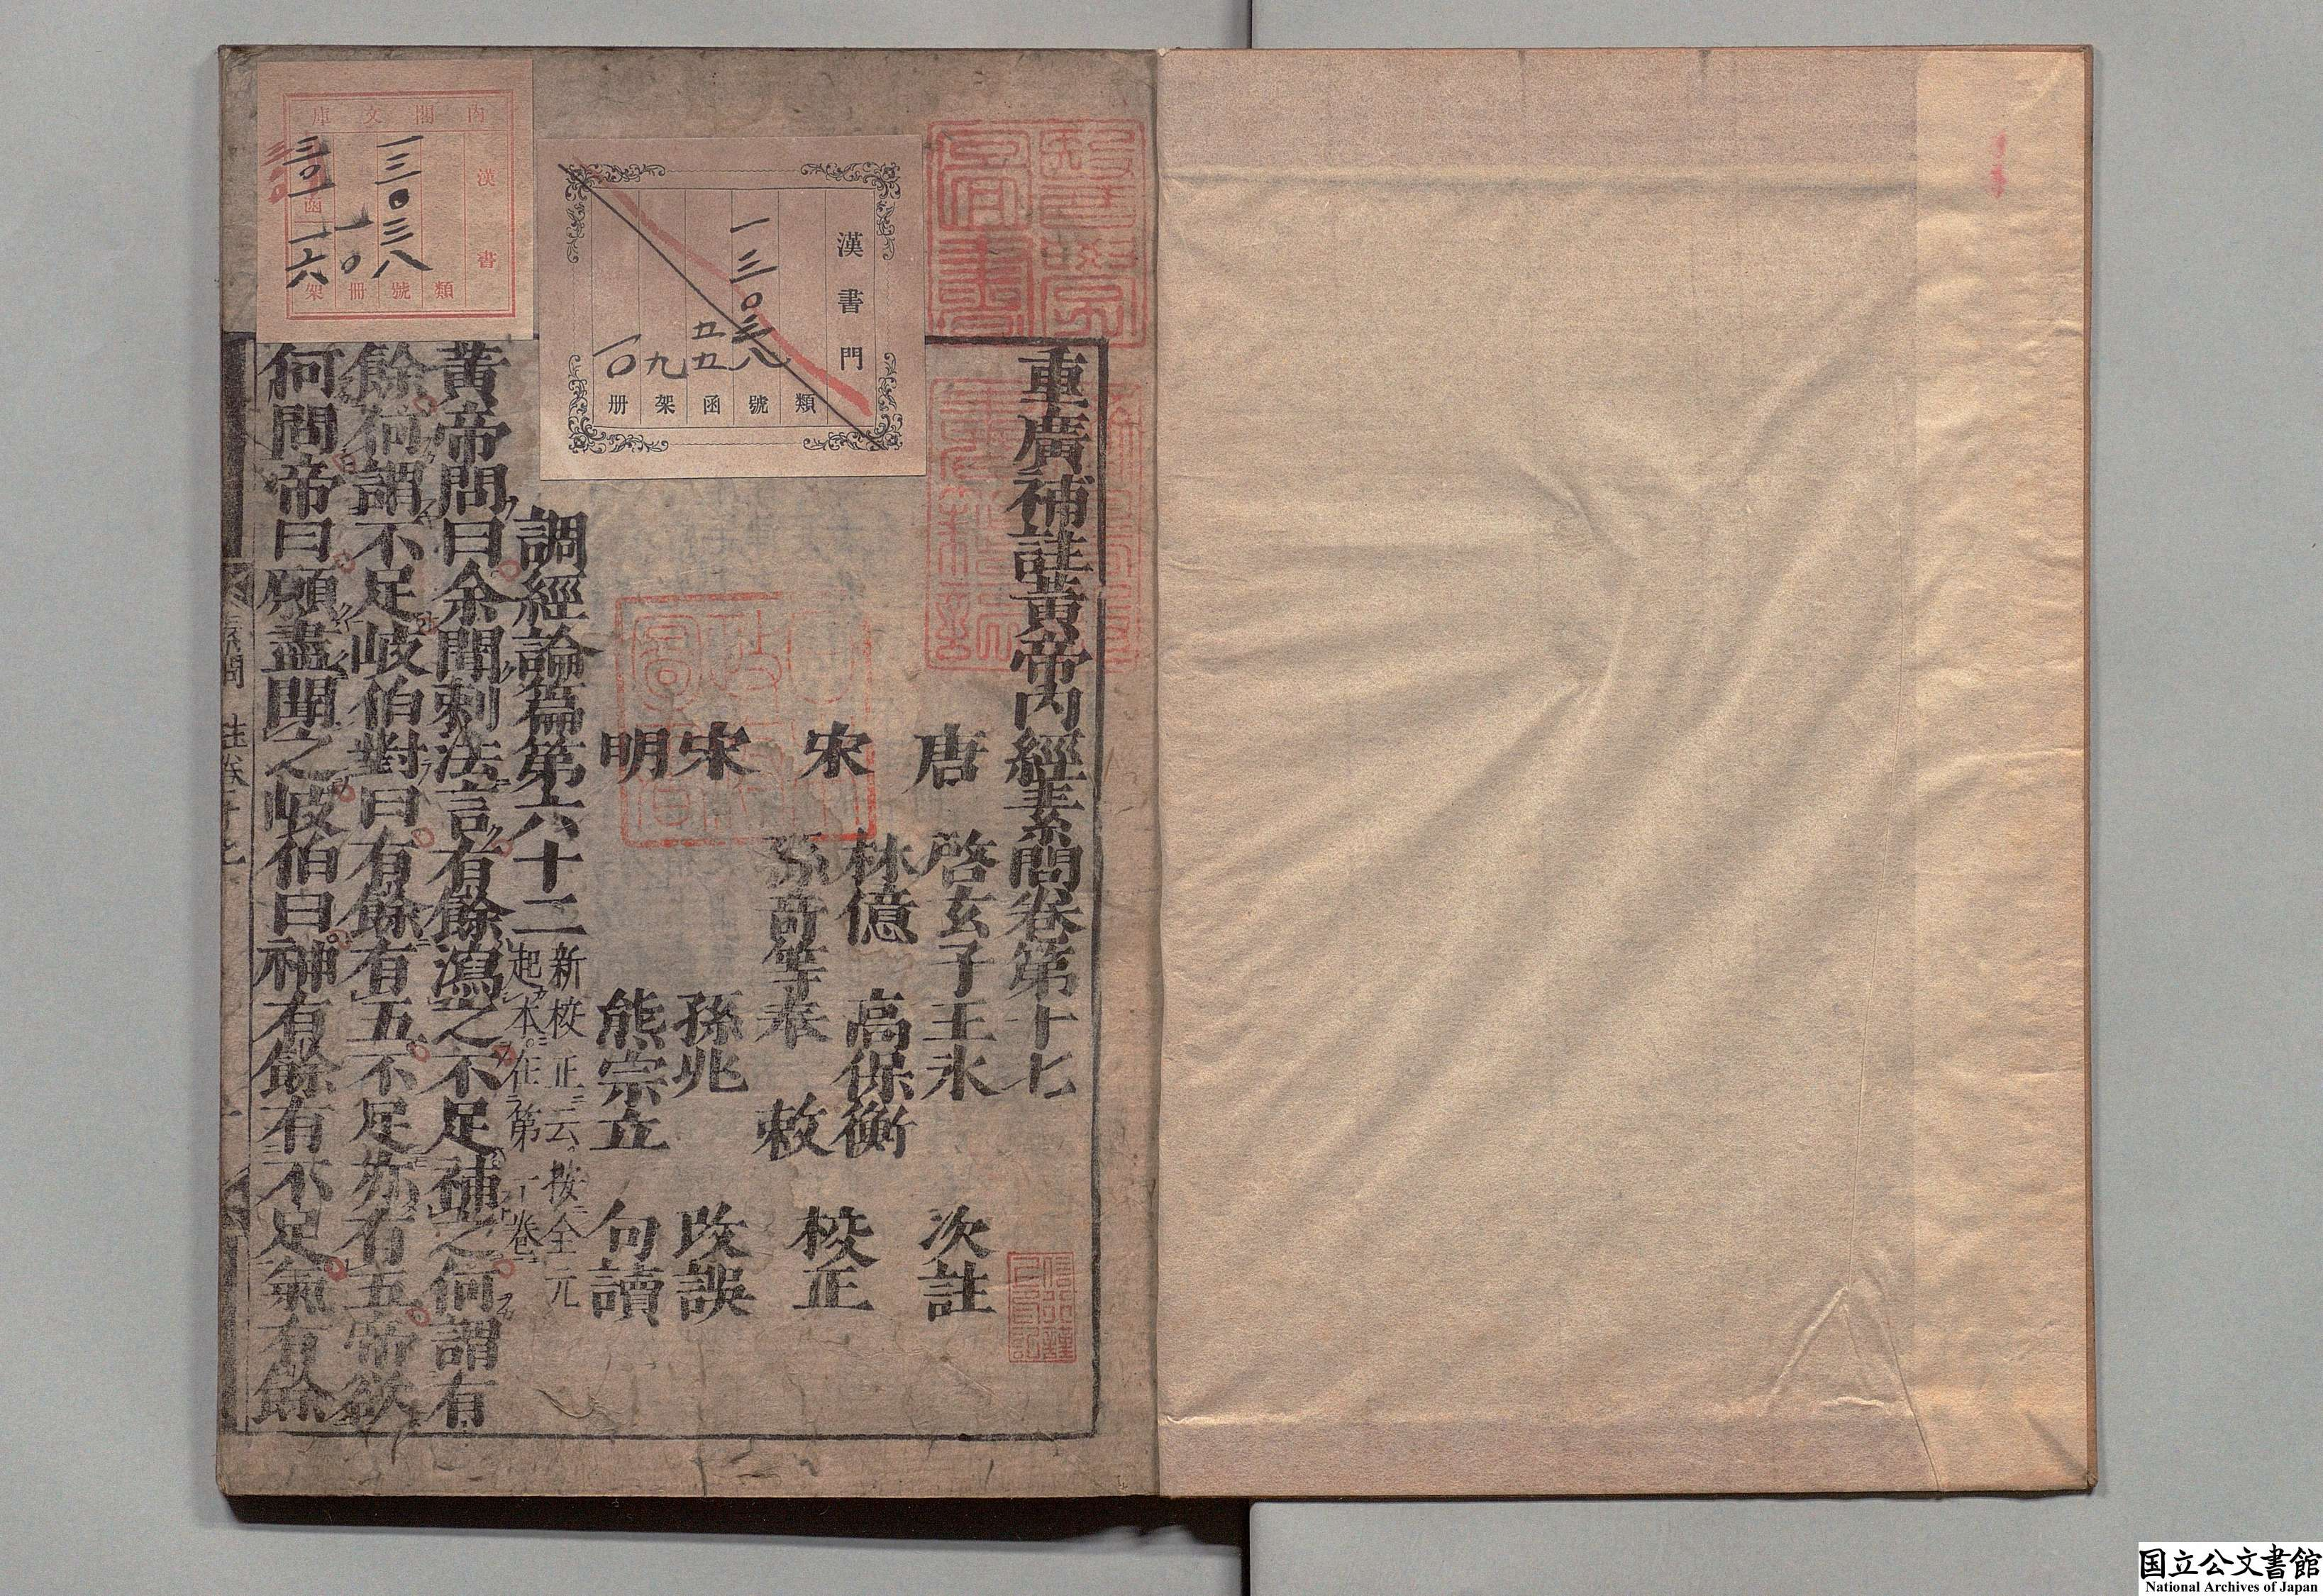 重廣補註黄帝内經素問卷第十七
唐　啓玄子王冰　次註
宋　林億　高保衡
孫竒等奉　敕　校正
宋　孫兆　改誤
明　熊宗立　句讀
調經論篇第六十二
新校正云按全元
起本在第一卷
黄帝問曰余聞刺法言有餘瀉之不足補之何謂有
餘何謂不足岐伯對曰有餘有五不足亦有五帝欲
何問帝曰願盡聞之岐伯曰神有餘有不足氣有餘
素問
漢書門
類
一三〇三八號
五五函
九架
一〇册
内閣文庫
漢書
類
一三〇三八號
一〇冊
三〇一函
一六架
醫學
圖書
国立公文書館
National Archives of Japan